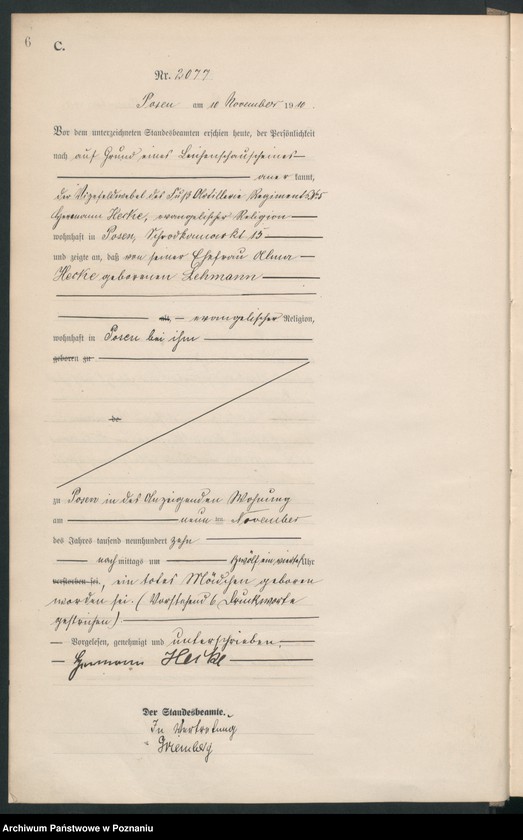 6
C.
Nr. 2077
Posen am 10 November 1910.
Vor dem unterzeichneten Standesbeamten erschien heute, der Persönlichkeit
nach auf Grund eines Leichenschauscheines
aner kannt,
der Vizefeldwebel des Fuß Artillerie Regiments No 5
Hermann Heske, evangelischer Religion
wohnhaft in Posen, Schrodkamarkt 15
und zeigte an, daß von seiner Ehefrau Alma
Heske geborenen Lehmann
alt, evangelischer Religion,
wohnhaft in Posen bei ihm
geboren zu
de
zu Posen in des Anzeigenden Wohnung
am neun ten November
des Jahres tausend neunhundert zehn
nach mittags um zwölf ein viertel Uhr
verstorben sei, ein totes Mädchen geboren
worden sei. (Vorstehend 6 Druckworte
gestrichen)
Vorgelesen, genehmigt und unterschrieben.
Hermann Heske
Der Standesbeamte.
In Vertretung
Archiwum Państwowe w Poznaniu